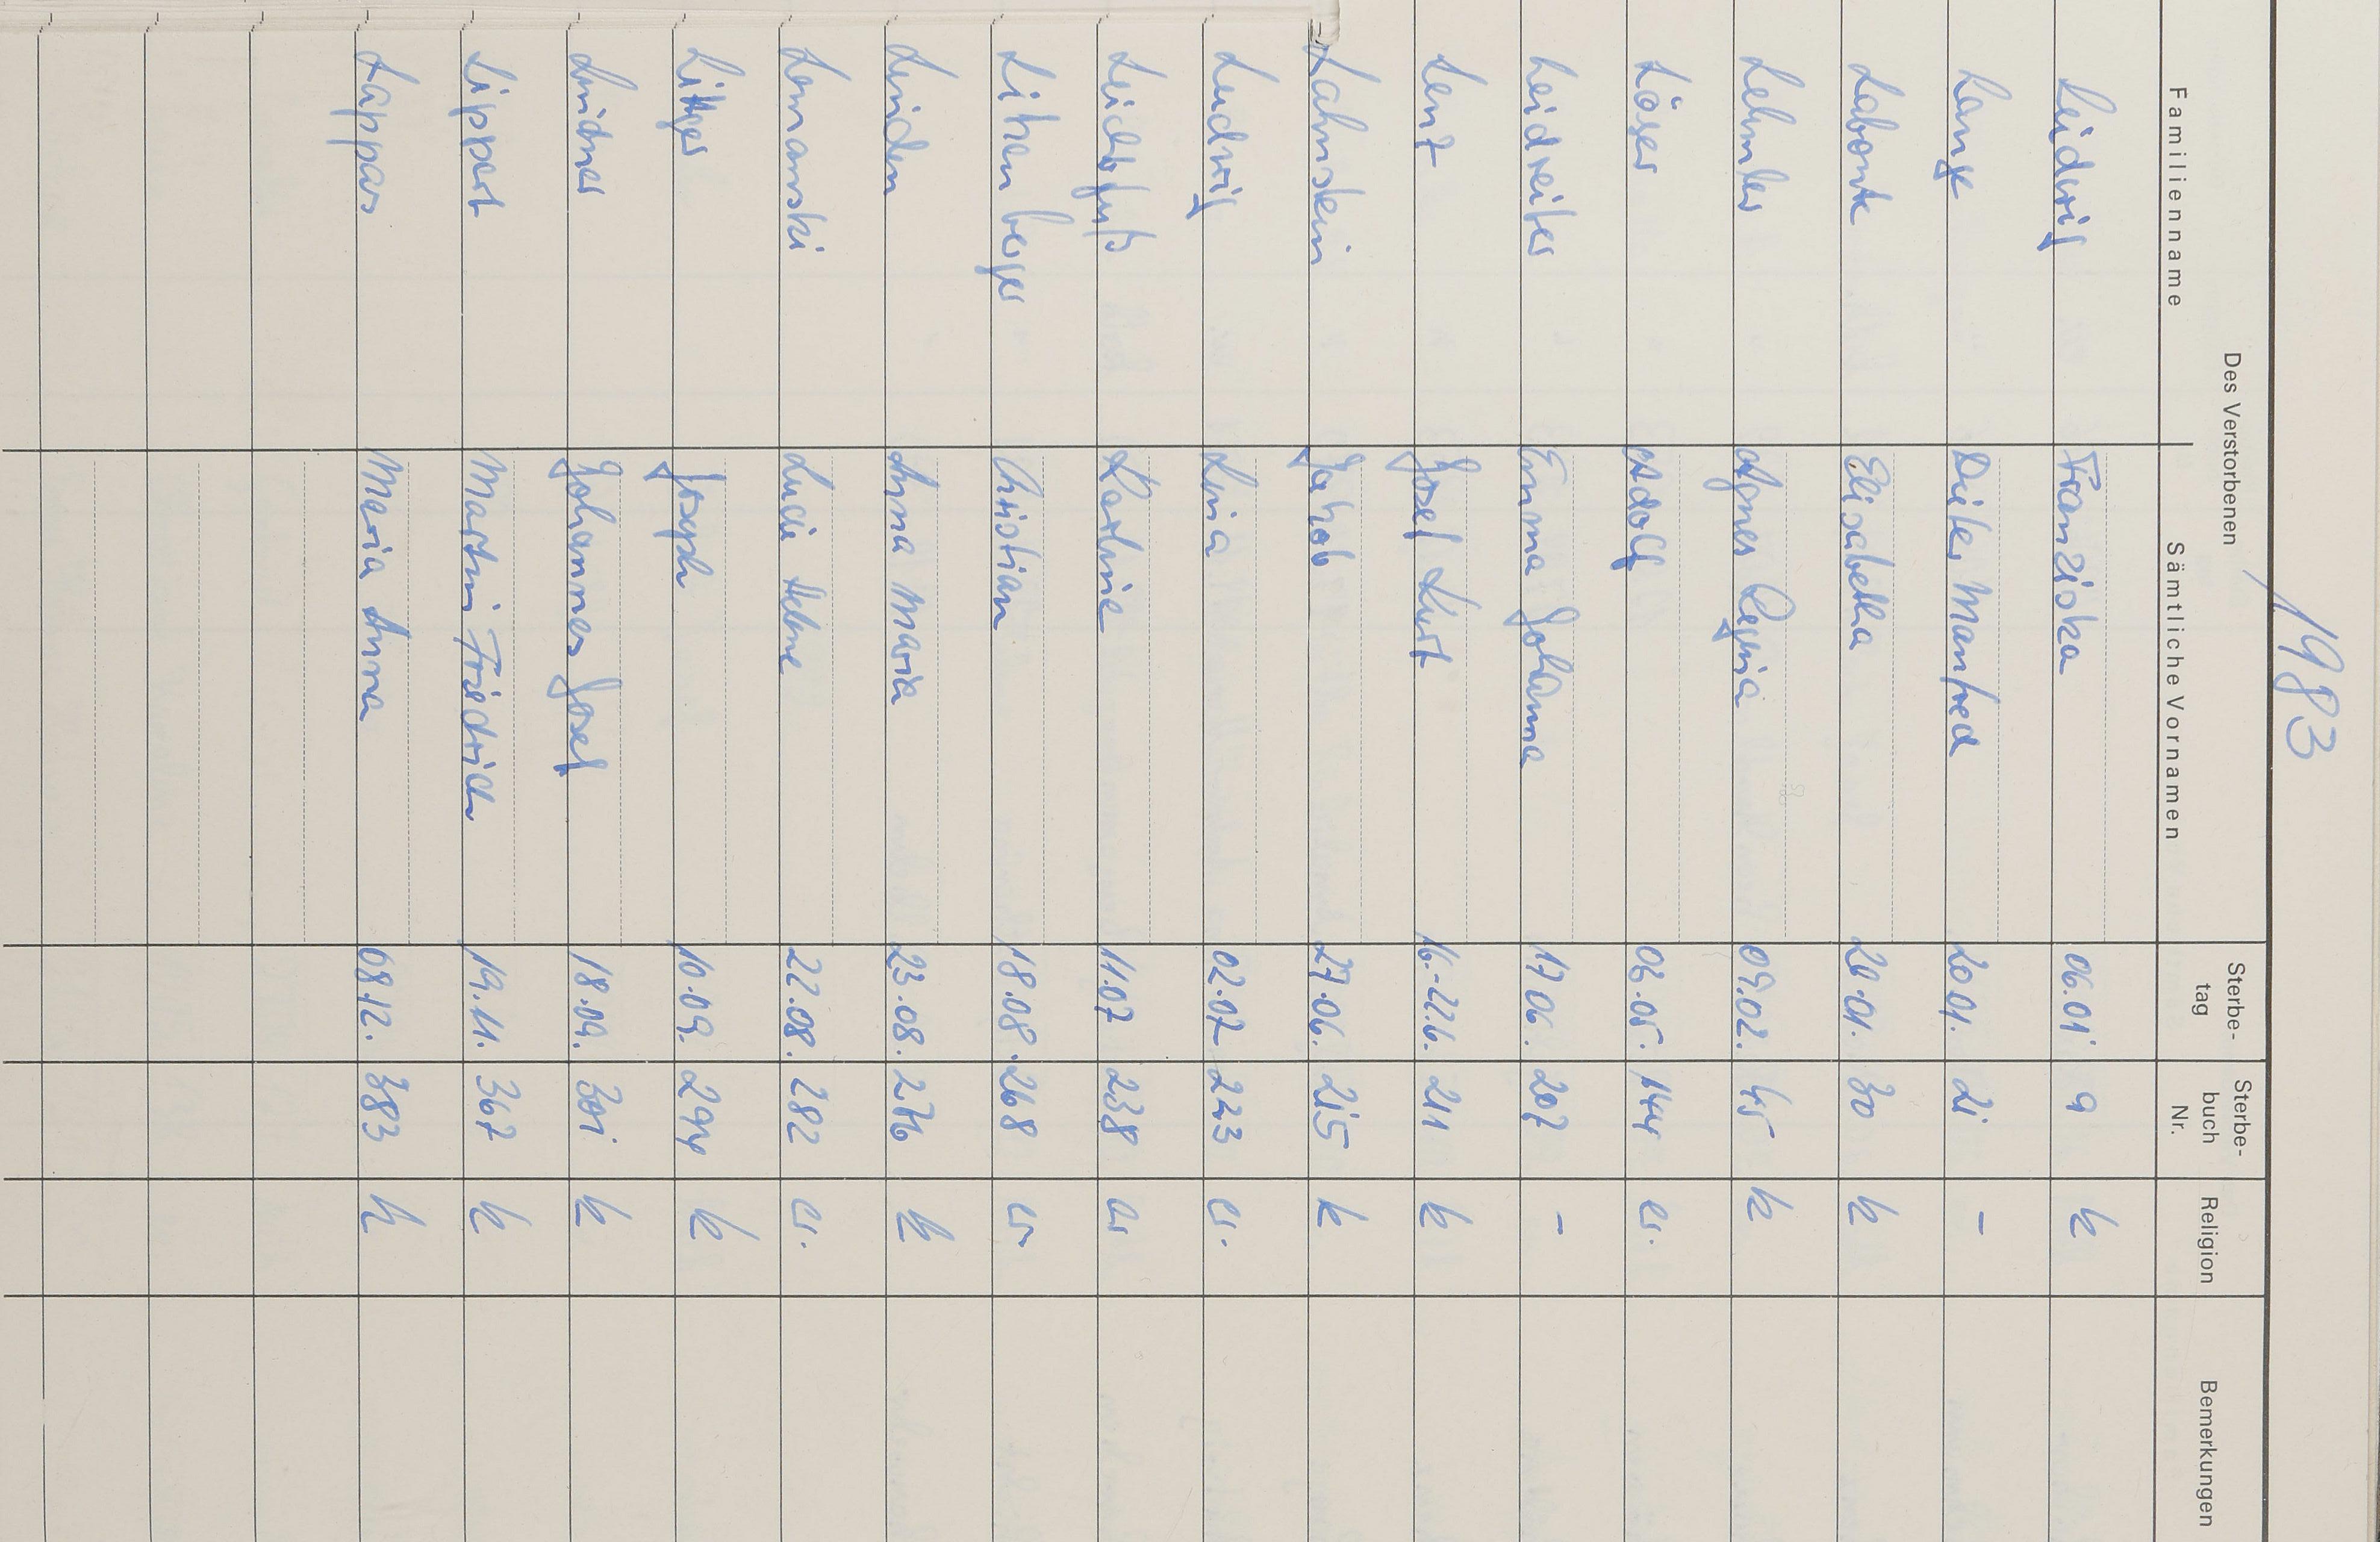 1983
Des Verstorbenen
Familienname Sämtliche Vornamen Sterbe-tag Sterbe-buch Nr. Religion Bemerkungen
Ludwig Franziska 06.01. 9 k
Lange Dieter Manfred 20 01. 21 –
Labonte Elisabetha 20.01. 30 k
Lehnler Agnes Regina 09.02. 45 k
Löser Adolf 03.05. 144 ev.
Leidreiter Emma Johanna 17 06. 207 –
Lenz Josef Kurt 16.-22.6. 211 k
Lahnstein Jakob 27.06. 215 k
Ludwig Livia 02.07. 223 ev.
Leichtfuß Karline 11.07 238 ev
Lichtenberger Christian 18.08. 268 ev
Linden Anna Maria 23.08. 276 k
Lomanski Lucie Helene 22.08. 282 ev.
Littger Joseph 10.09. 294 k
Lindner Johannes Josef 18.09. 301 k
Lippert Martin Friedrich 19.11. 367 k
Lappas Maria Anna 08.12. 383 k